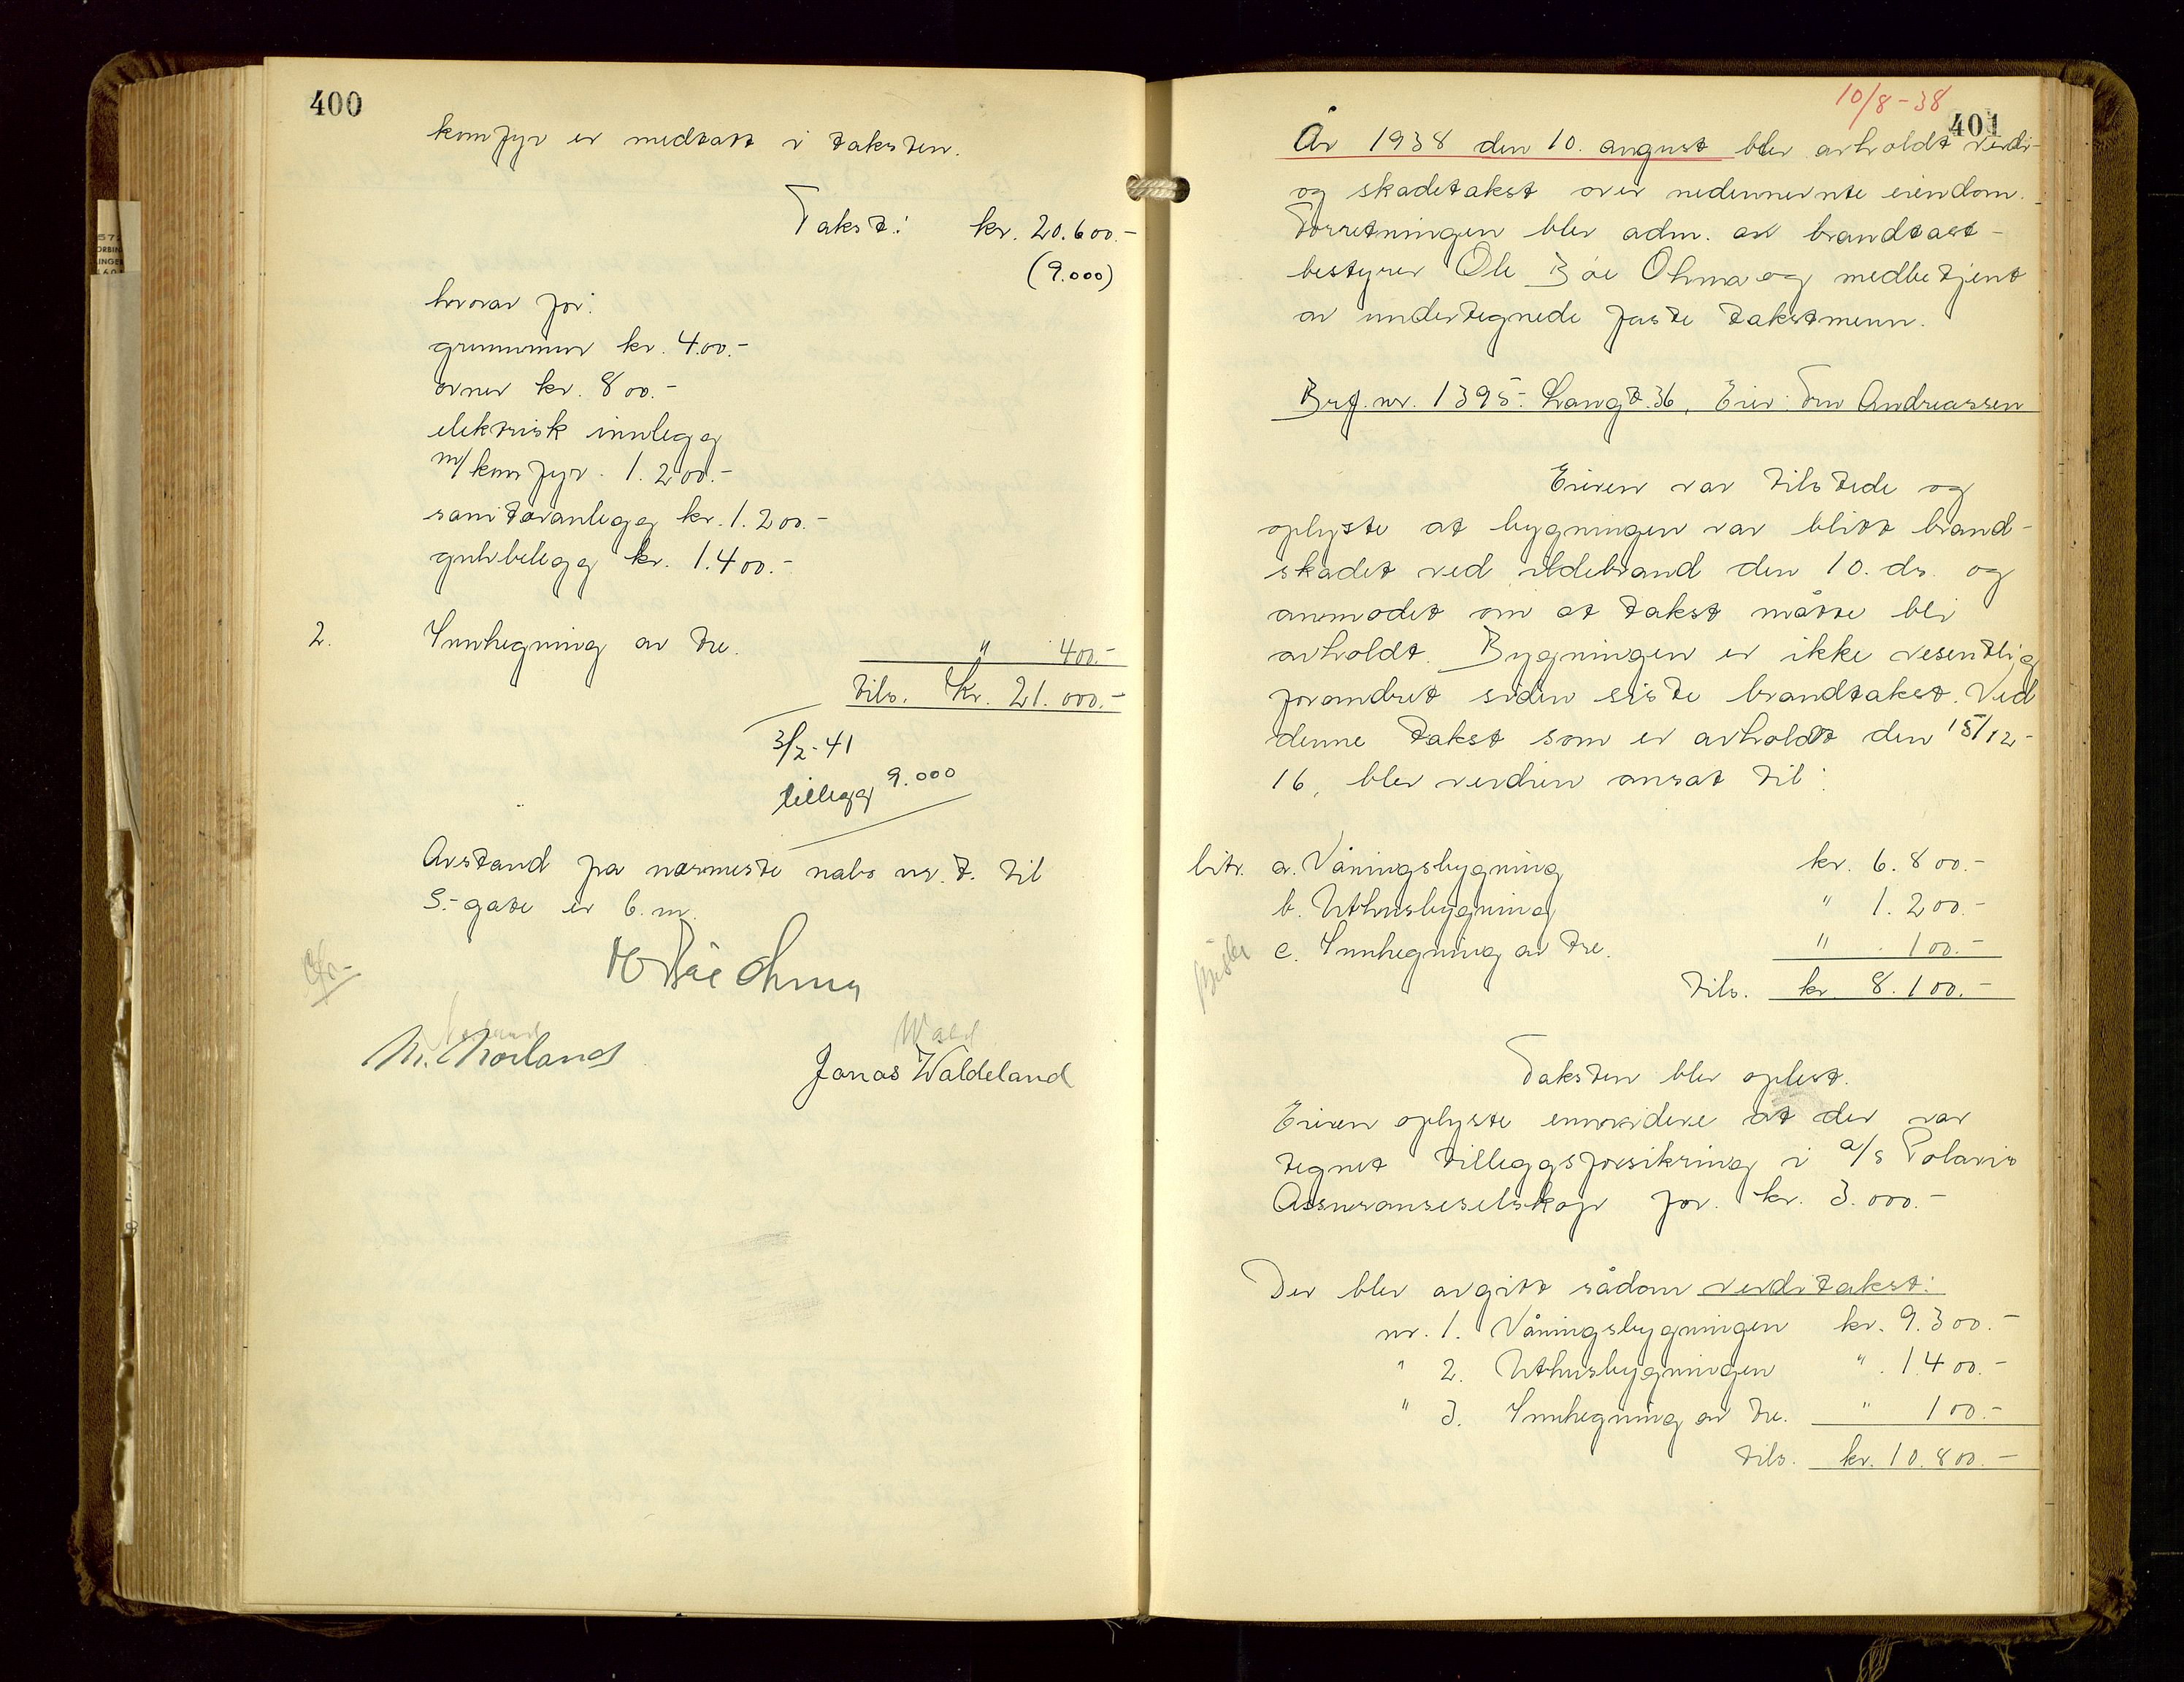 400
komfyr er medtatt i taksten.
Takst: kr. 20.600.-
(9.000)
hvorav for:
grunnmur kr. 400.-
ovner kr. 800.-
elektrisk innlegg
m/komfyr. 1.200.-
sanitæranlegg kr. 1.200.-
gulvbelegg kr. 1.400.-
2. Innhegning av tre. " 400.-
tils. kr. 21.000.-
3/2-41
tillegg 9.000
Avstand fra nærmeste nabo nr. 7. til
S.-gate er 6. m.
O Bøe Ohma
M. Norland
Wald
Jonas Waldeland
10/8-38
401
År 1938 den 10. august blev avholdt verdi-
og skadetakst over nedennevnte eiendom.
Forretningen blev adm. av brandtast-
bestyrer Ole Bøe Ohma og medbetjent
av undertegnede faste takstmenn.
Brf. nr. 1395. Langt. 36, Eier: Andreassen
Eieren var tilstede og
oplyste at bygningen var blitt brand-
skadet ved ildebrand den 10. ds. og
anmodet om at takst måtte bli
avholdt. Bygningen er ikke vesentlig
forandret siden siste brandtakst. Ved
denne takst som er avholdt den 15/12-
16, blev verdien ansat til:
litr. a. Våningsbygning kr. 6.800.-
b. Uthusbygning " 1.200.-
c. Innhegning av tre. " 100.-
tils. kr. 8.100.-
Taksten blev oplest.
Eieren oplyste ennvidere at der var
tegnet tilleggsforsikring i a/s Polaris
Assuranseselskap for. kr. 3.000.-
Der blev avgitt sådan verditakst:
nr. 1. Våningsbygningen kr. 9.300.-
" 2. Uthusbygningen ". 1400.-
" 3. Innhegning av tre. " 100.-
tils. kr. 10.800.-